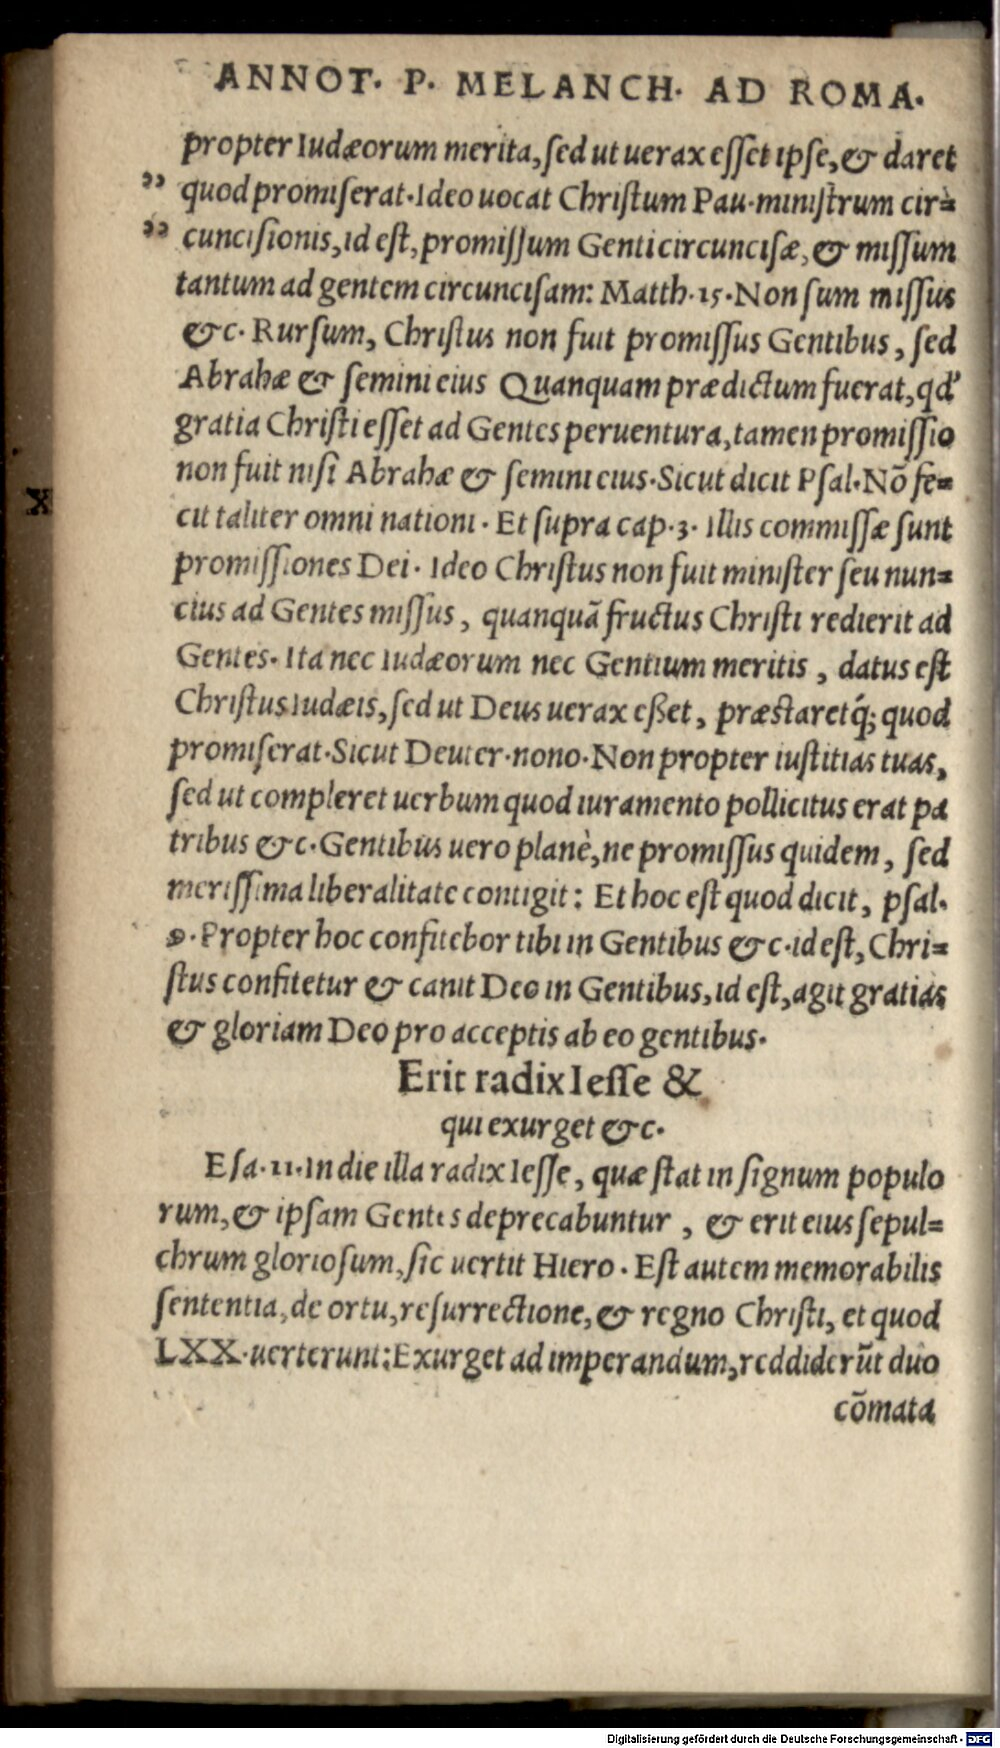 ANNOT. P. MELANCH. AD ROMA.
propter Iudæorum merita, sed ut uerax esset ipse, & daret
„ quod promiserat. Ideo uocat Christum Pau. ministrum cir=
„ cuncisionis, id est, promissum Genti circuncisæ, & missum
tantum ad gentem circuncisam: Matth. 15. Non sum missus
&c. Rursum, Christus non fuit promissus Gentibus, sed
Abrahæ & semini eius Quanquam prædictum fuerat, qd’
gratia Christi esset ad Gentes peruentura, tamen promissio
non fuit nisi Abrahæ & semini eius. Sicut dicit Psal. Nō fe=
cit taliter omni nationi. Et supra cap. 3. Illis commissæ sunt
promissiones Dei. Ideo Christus non fuit minister seu nun=
cius ad Gentes missus, quanquā fructus Christi redierit ad
Gentes. Ita nec Iudæorum nec Gentium meritis, datus est
Christus Iudæis, sed ut Deus uerax eßet, præstaretq́; quod
promiserat. Sicut Deuter. nono. Non propter iustitias tuas,
sed ut compleret uerbum quod iuramento pollicitus erat pa
tribus &c. Gentibus uero planè, ne promissus quidem, sed
merissima liberalitate contigit: Et hoc est quod dicit, psal.
9. Propter hoc confitebor tibi in Gentibus &c. id est, Chri=
stus confitetur & canit Deo in Gentibus, id est, agit gratias
& gloriam Deo pro acceptis ab eo gentibus.
Erit radix Iesse &
qui exurget &c.
Esa. 11. In die illa radix Iesse, quæ stat in signum populo
rum, & ipsam Gentes deprecabuntur, & erit eius sepul=
chrum gloriosum, sic uertit Hiero. Est autem memorabilis
sententia, de ortu, resurrectione, & regno Christi, et quod
LXX. uerterunt: Exurget ad imperandum, reddiderūt duo
cōmata
X
Digitalisierung gefördert durch die Deutsche Forschungsgemeinschaft - DFG